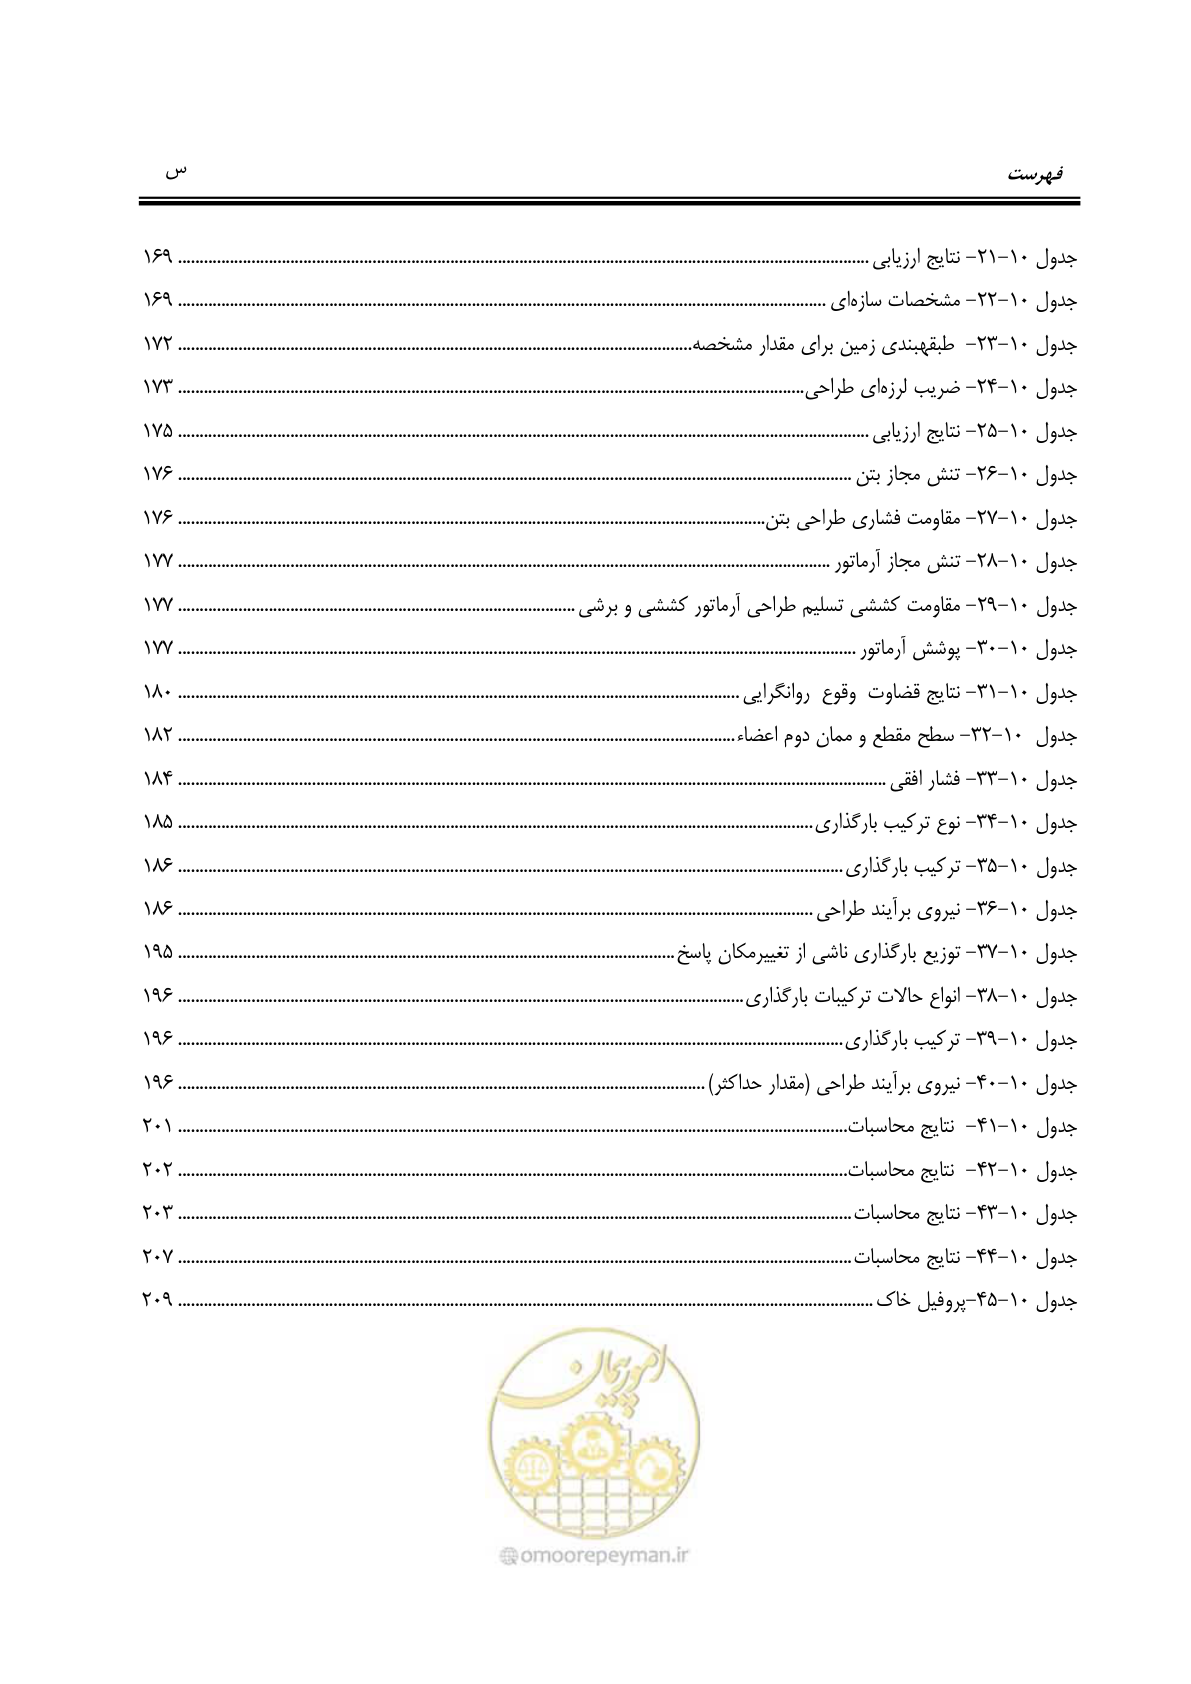 فهرست س
جدول ۱۰-۲۱- نتایج ارزیابی ........ ۱۶۹
جدول ۱۰-۲۲- مشخصات سازه‌ای ........ ۱۶۹
جدول ۱۰-۲۳- طبقهبندی زمین برای مقدار مشخصه ........ ۱۷۲
جدول ۱۰-۲۴- ضریب لرزه‌ای طراحی ........ ۱۷۳
جدول ۱۰-۲۵- نتایج ارزیابی ........ ۱۷۵
جدول ۱۰-۲۶- تنش مجاز بتن ........ ۱۷۶
جدول ۱۰-۲۷- مقاومت فشاری طراحی بتن ........ ۱۷۶
جدول ۱۰-۲۸- تنش مجاز آرماتور ........ ۱۷۷
جدول ۱۰-۲۹- مقاومت کششی تسلیم طراحی آرماتور کششی و برشی ........ ۱۷۷
جدول ۱۰-۳۰- پوشش آرماتور ........ ۱۷۷
جدول ۱۰-۳۱- نتایج قضاوت وقوع روانگرایی ........ ۱۸۰
جدول ۱۰-۳۲- سطح مقطع و ممان دوم اعضاء ........ ۱۸۲
جدول ۱۰-۳۳- فشار افقی ........ ۱۸۴
جدول ۱۰-۳۴- نوع ترکیب بارگذاری ........ ۱۸۵
جدول ۱۰-۳۵- ترکیب بارگذاری ........ ۱۸۶
جدول ۱۰-۳۶- نیروی برآیند طراحی ........ ۱۸۶
جدول ۱۰-۳۷- توزیع بارگذاری ناشی از تغییرمکان پاسخ ........ ۱۹۵
جدول ۱۰-۳۸- انواع حالات ترکیبات بارگذاری ........ ۱۹۶
جدول ۱۰-۳۹- ترکیب بارگذاری ........ ۱۹۶
جدول ۱۰-۴۰- نیروی برآیند طراحی (مقدار حداکثر) ........ ۱۹۶
جدول ۱۰-۴۱- نتایج محاسبات ........ ۲۰۱
جدول ۱۰-۴۲- نتایج محاسبات ........ ۲۰۲
جدول ۱۰-۴۳- نتایج محاسبات ........ ۲۰۳
جدول ۱۰-۴۴- نتایج محاسبات ........ ۲۰۷
جدول ۱۰-۴۵-پروفیل خاک ........ ۲۰۹
امور پیمان
omoorepeyman.ir